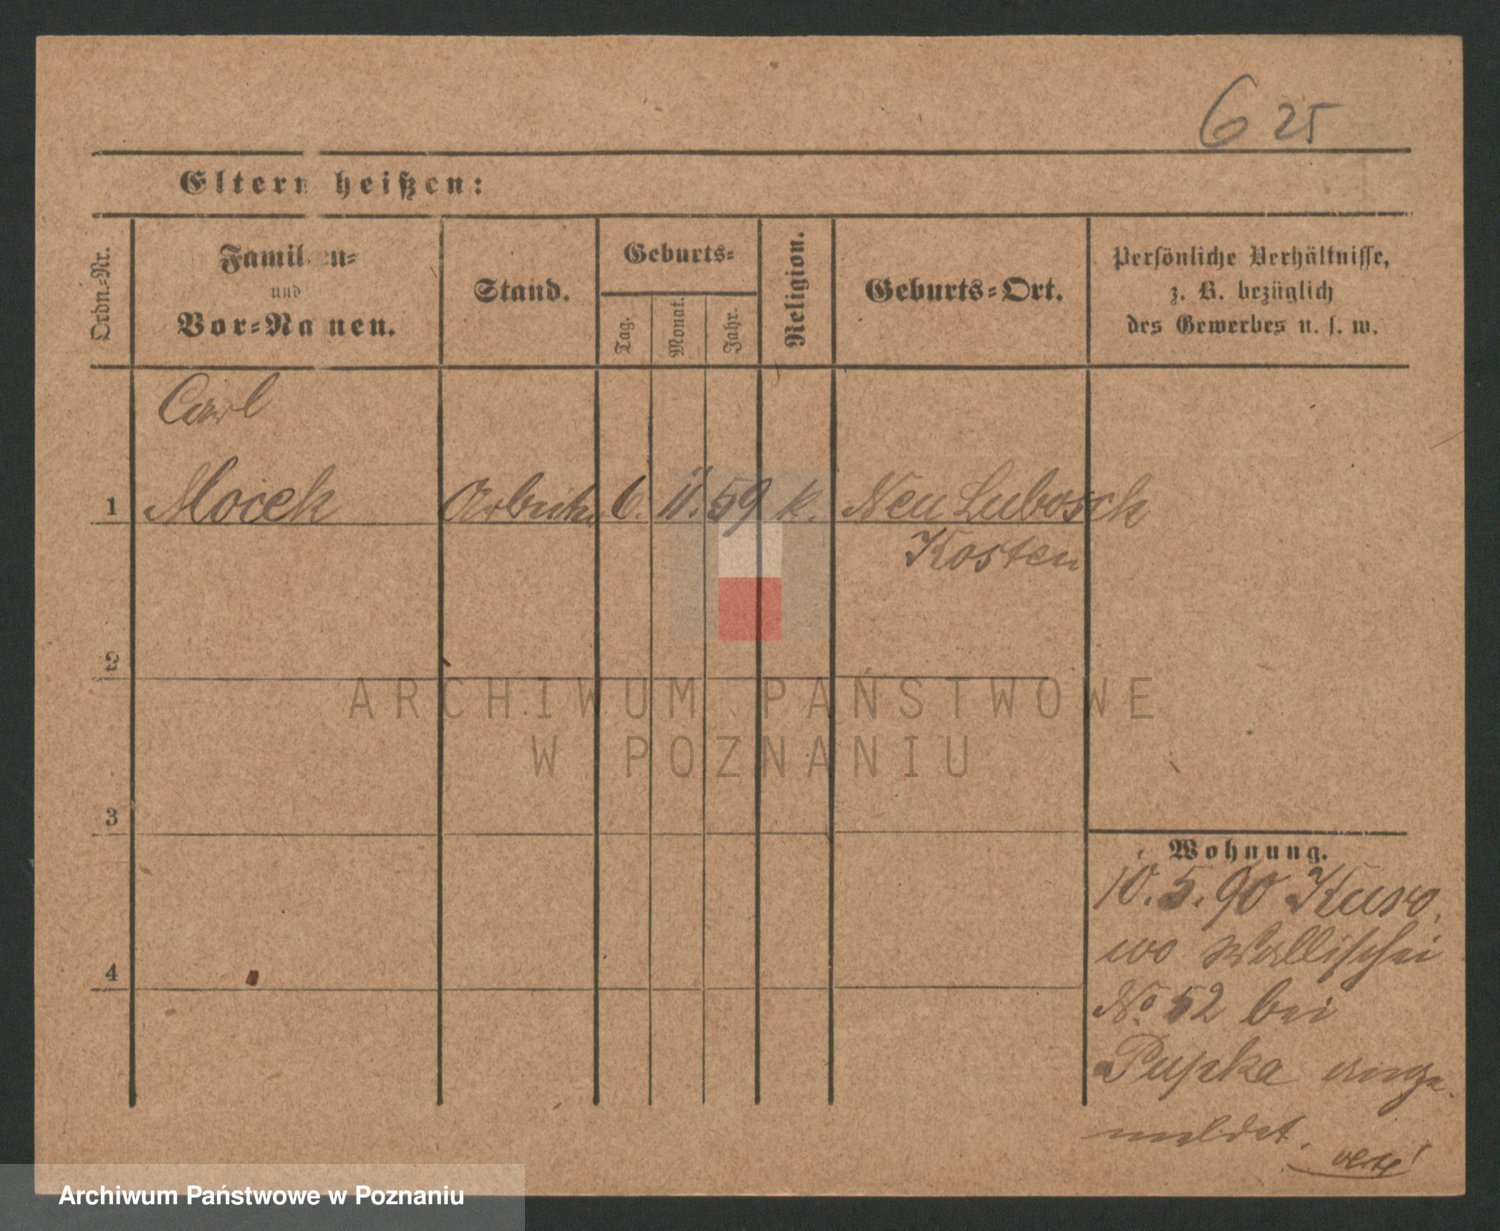 6 25
Eltern heißen:
Ordn.-Nr.
Familien-
und
Vor-Namen.
Stand.
Geburts-
Tag.
Monat.
Jahr.
Religion.
Geburts-Ort.
Persönliche Verhältnisse,
z. B. bezüglich
des Gewerbes u. s. w.
Carl
1 Mocek Arbeiter 6. 11. 59 k. Neu Lubosch
Kosten
2
3
4
Wohnung.
10. 5. 90 Kuro,
wo Wallischei
No 52 bei
Pupka ange-
meldet.
ARCHIWUM PAŃSTWOWE
W POZNANIU
Archiwum Państwowe w Poznaniu